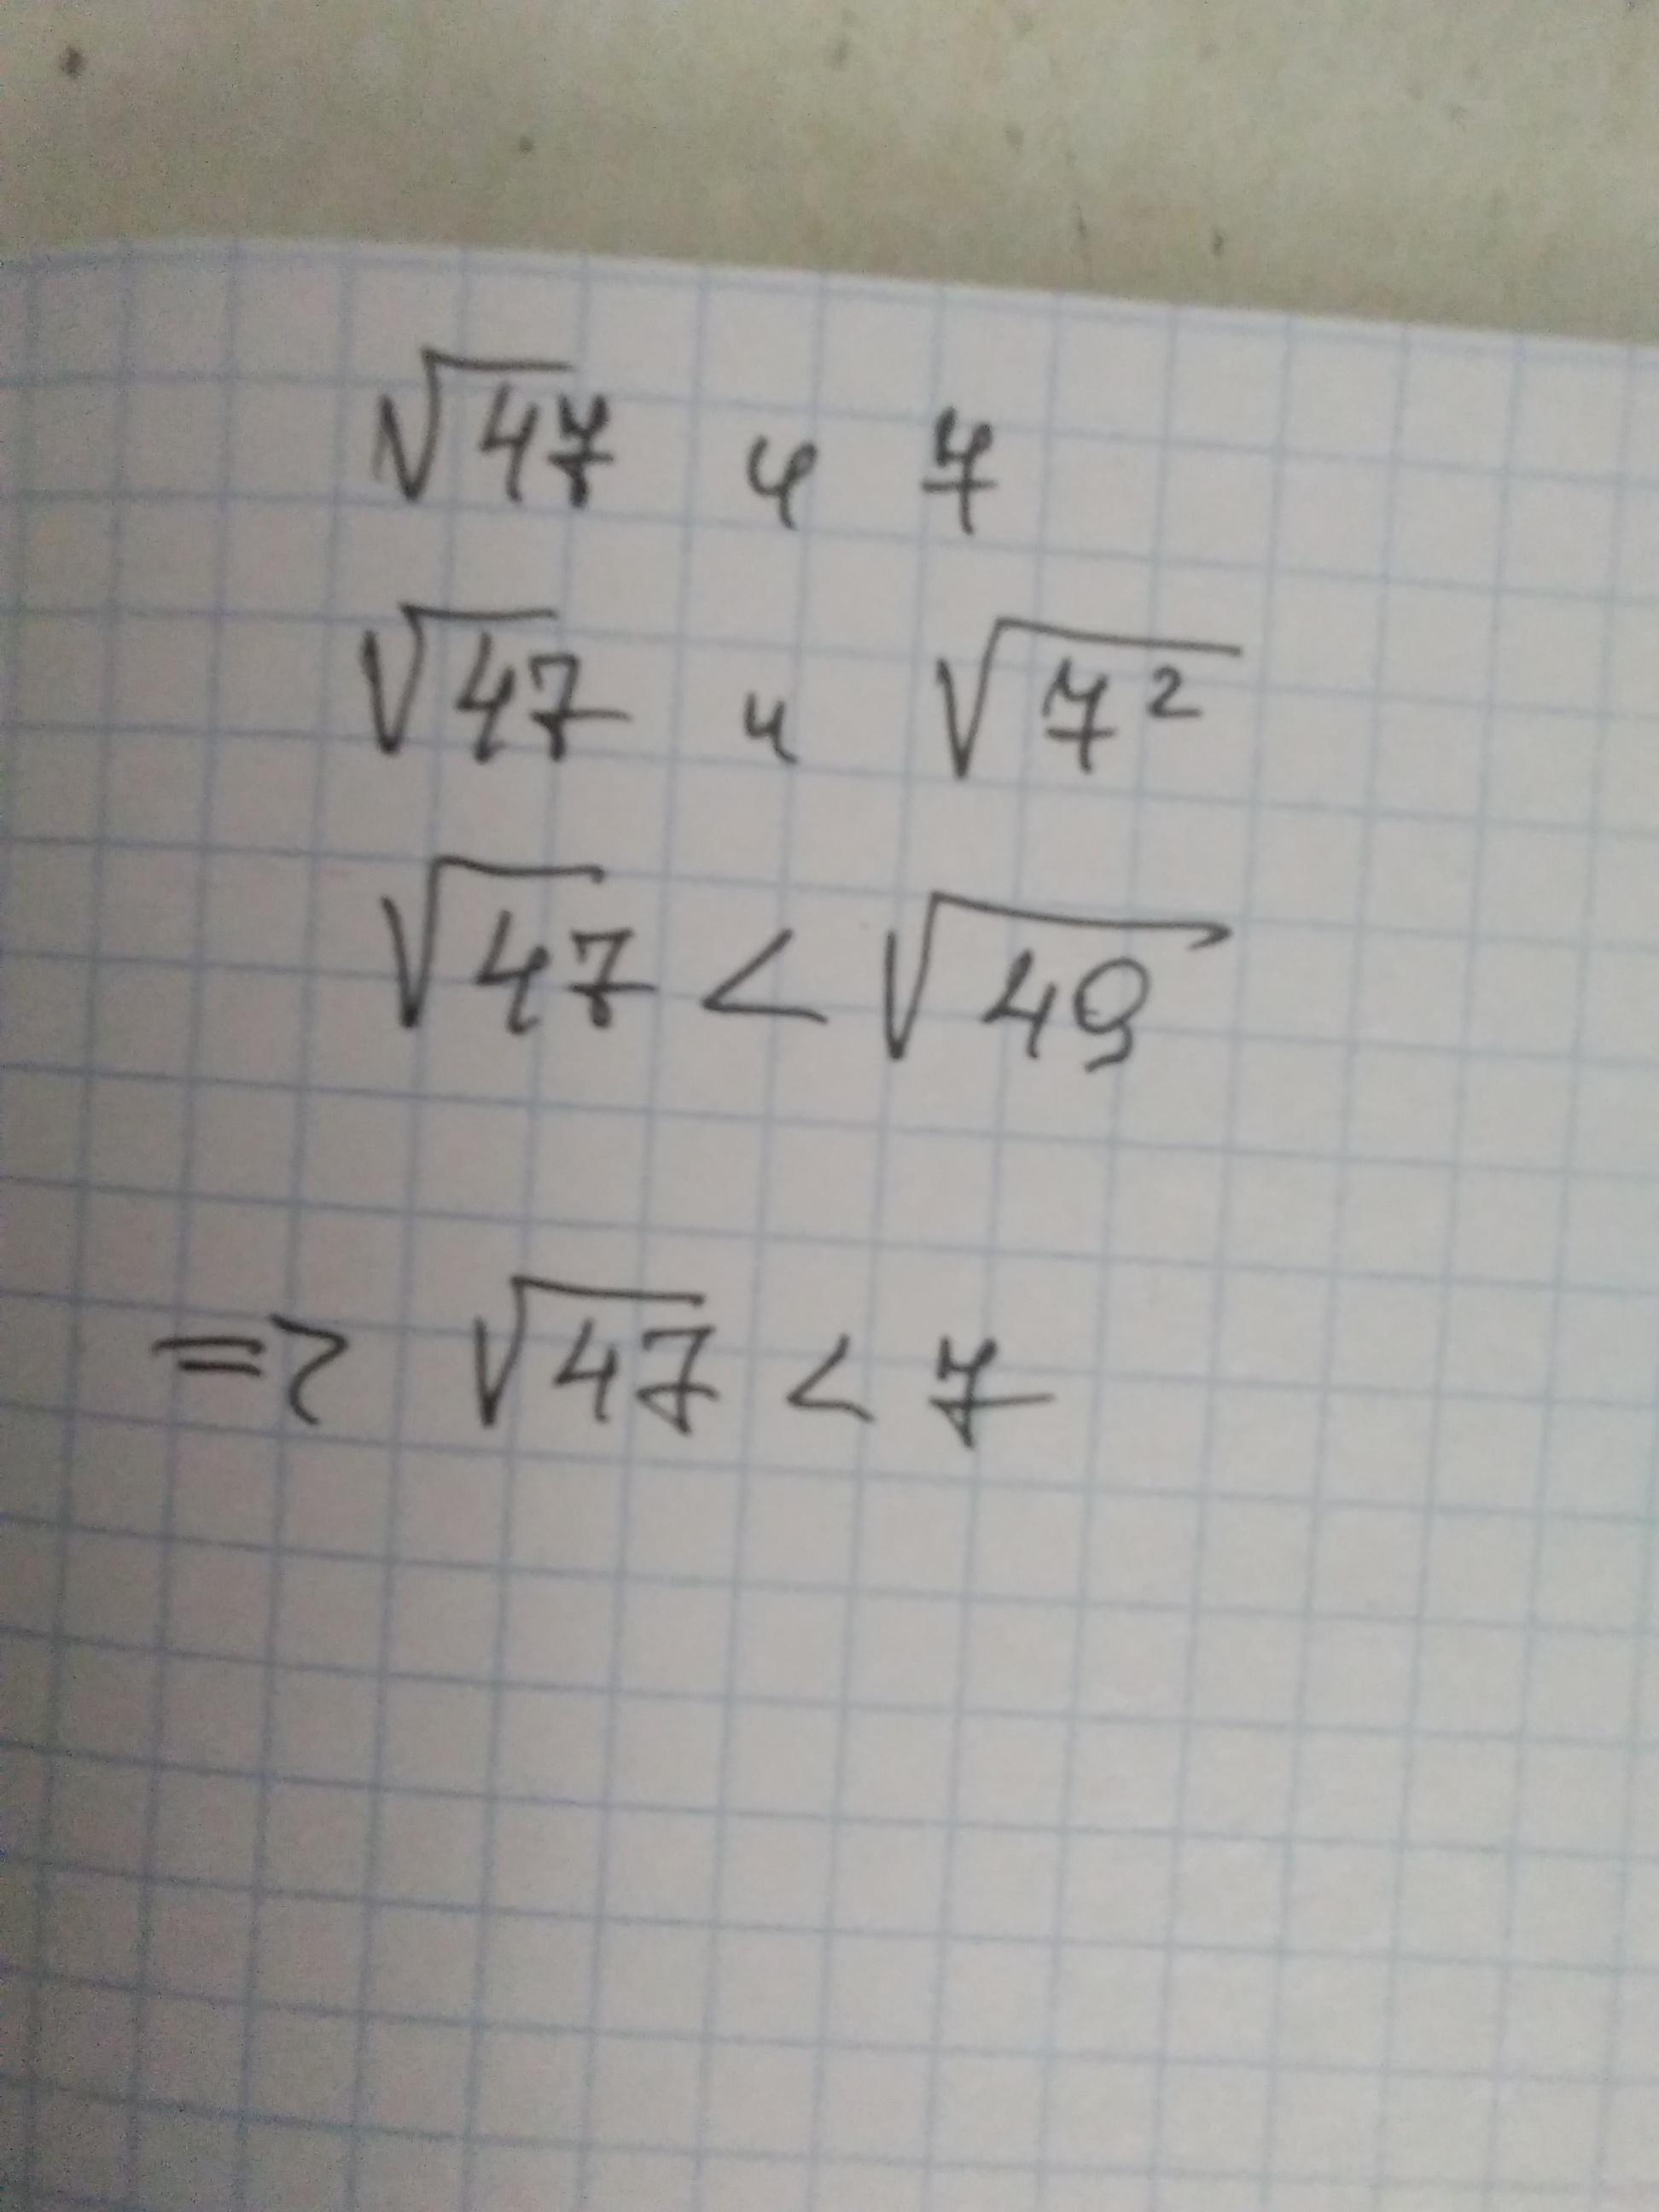 √47 и 7
√47 и √7²
√47 < √49
=> √47 < 7